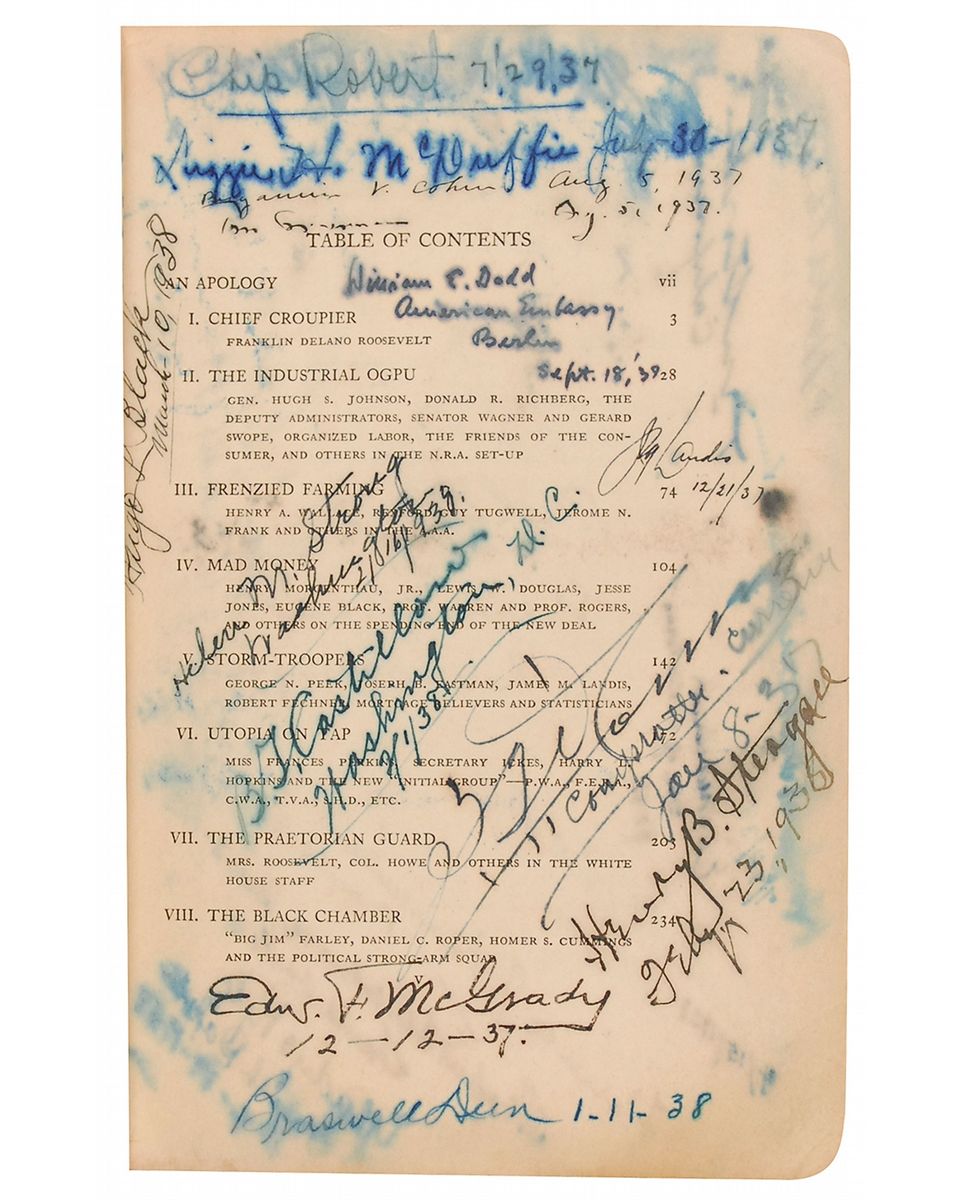 Chip Robert 7/29/37
Lizzie H. McDuffie July-30-1937.
Benjamin V. Cohen Aug. 5, 1937
Aug. 5, 1937.
TABLE OF CONTENTS
AN APOLOGY vii
William E. Dodd
American Embassy
Berlin
Sept. 18,
I. CHIEF CROUPIER 3
FRANKLIN DELANO ROOSEVELT
II. THE INDUSTRIAL OGPU 28
GEN. HUGH S. JOHNSON, DONALD R. RICHBERG, THE
DEPUTY ADMINISTRATORS, SENATOR WAGNER AND GERARD
SWOPE, ORGANIZED LABOR, THE FRIENDS OF THE CON-
SUMER, AND OTHERS IN THE N.R.A. SET-UP
Hugo L Black
March-19, 1938
Landis
12/21/37
III. FRENZIED FARMING 74
HENRY A. WALLACE, REXFORD GUY TUGWELL, JEROME N.
FRANK AND OTHERS IN THE A.A.A.
Helen M. Strong
Washington
2/16/1939.
IV. MAD MONEY 104
HENRY MORGENTHAU, JR., LEWIS W. DOUGLAS, JESSE
JONES, EUGENE BLACK, PROF. WARREN AND PROF. ROGERS,
AND OTHERS ON THE SPENDING END OF THE NEW DEAL
Castillano
Washington, D.C.
2/1/38
V. STORM-TROOPERS 142
GEORGE N. PEEK, JOSEPH B. EASTMAN, JAMES M. LANDIS,
ROBERT FECHNER, MORTGAGE RELIEVERS AND STATISTICIANS
VI. UTOPIA ON TAP 172
MISS FRANCES PERKINS, SECRETARY ICKES, HARRY L.
HOPKINS AND THE NEW "INITIAL GROUP"—P.W.A., F.E.R.A.,
C.W.A., T.V.A., S.H.D., ETC.
Comptroller. Currency
Jan 8-38
VII. THE PRAETORIAN GUARD 203
MRS. ROOSEVELT, COL. HOWE AND OTHERS IN THE WHITE
HOUSE STAFF
Henry B. Steagall
Feby 23, 1938
VIII. THE BLACK CHAMBER 234
"BIG JIM" FARLEY, DANIEL C. ROPER, HOMER S. CUMMINGS
AND THE POLITICAL STRONG-ARM SQUAD
v
Edw. F. McGrady
12-12-37.
Braswell Deen 1-11-38